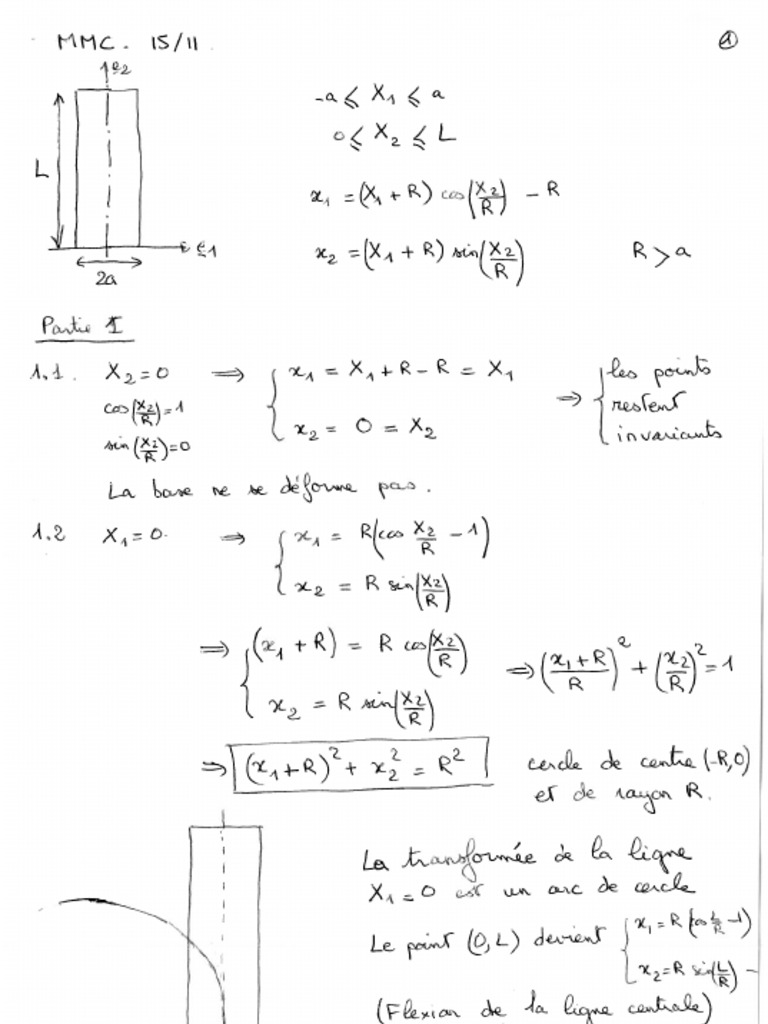 MMC. 15/11
1
e2
-a ≤ X₁ ≤ a
0 ≤ X₂ ≤ L
L
x₁ = (X₁ + R) cos(X₂/R) - R
e1
x₂ = (X₁ + R) sin(X₂/R) R > a
2a
Partie I
1.1. X₂ = 0 ⟹ { x₁ = X₁ + R - R = X₁ ⟹ { les points
cos(X₂/R) = 1 restent
sin(X₂/R) = 0 x₂ = 0 = X₂ invariants
La base ne se déforme pas.
1.2 X₁ = 0. ⟹ { x₁ = R(cos X₂/R - 1)
x₂ = R sin(X₂/R)
⟹ { (x₁ + R) = R cos(X₂/R) ⟹ ((x₁ + R)/R)² + (x₂/R)² = 1
x₂ = R sin(X₂/R)
⟹ (x₁ + R)² + x₂² = R² cercle de centre (-R, 0)
et de rayon R.
La transformée de la ligne
X₁ = 0 est un arc de cercle
Le point (0, L) devient { x₁ = R(cos L/R - 1)
x₂ = R sin(L/R)
(Flexion de la ligne centrale)